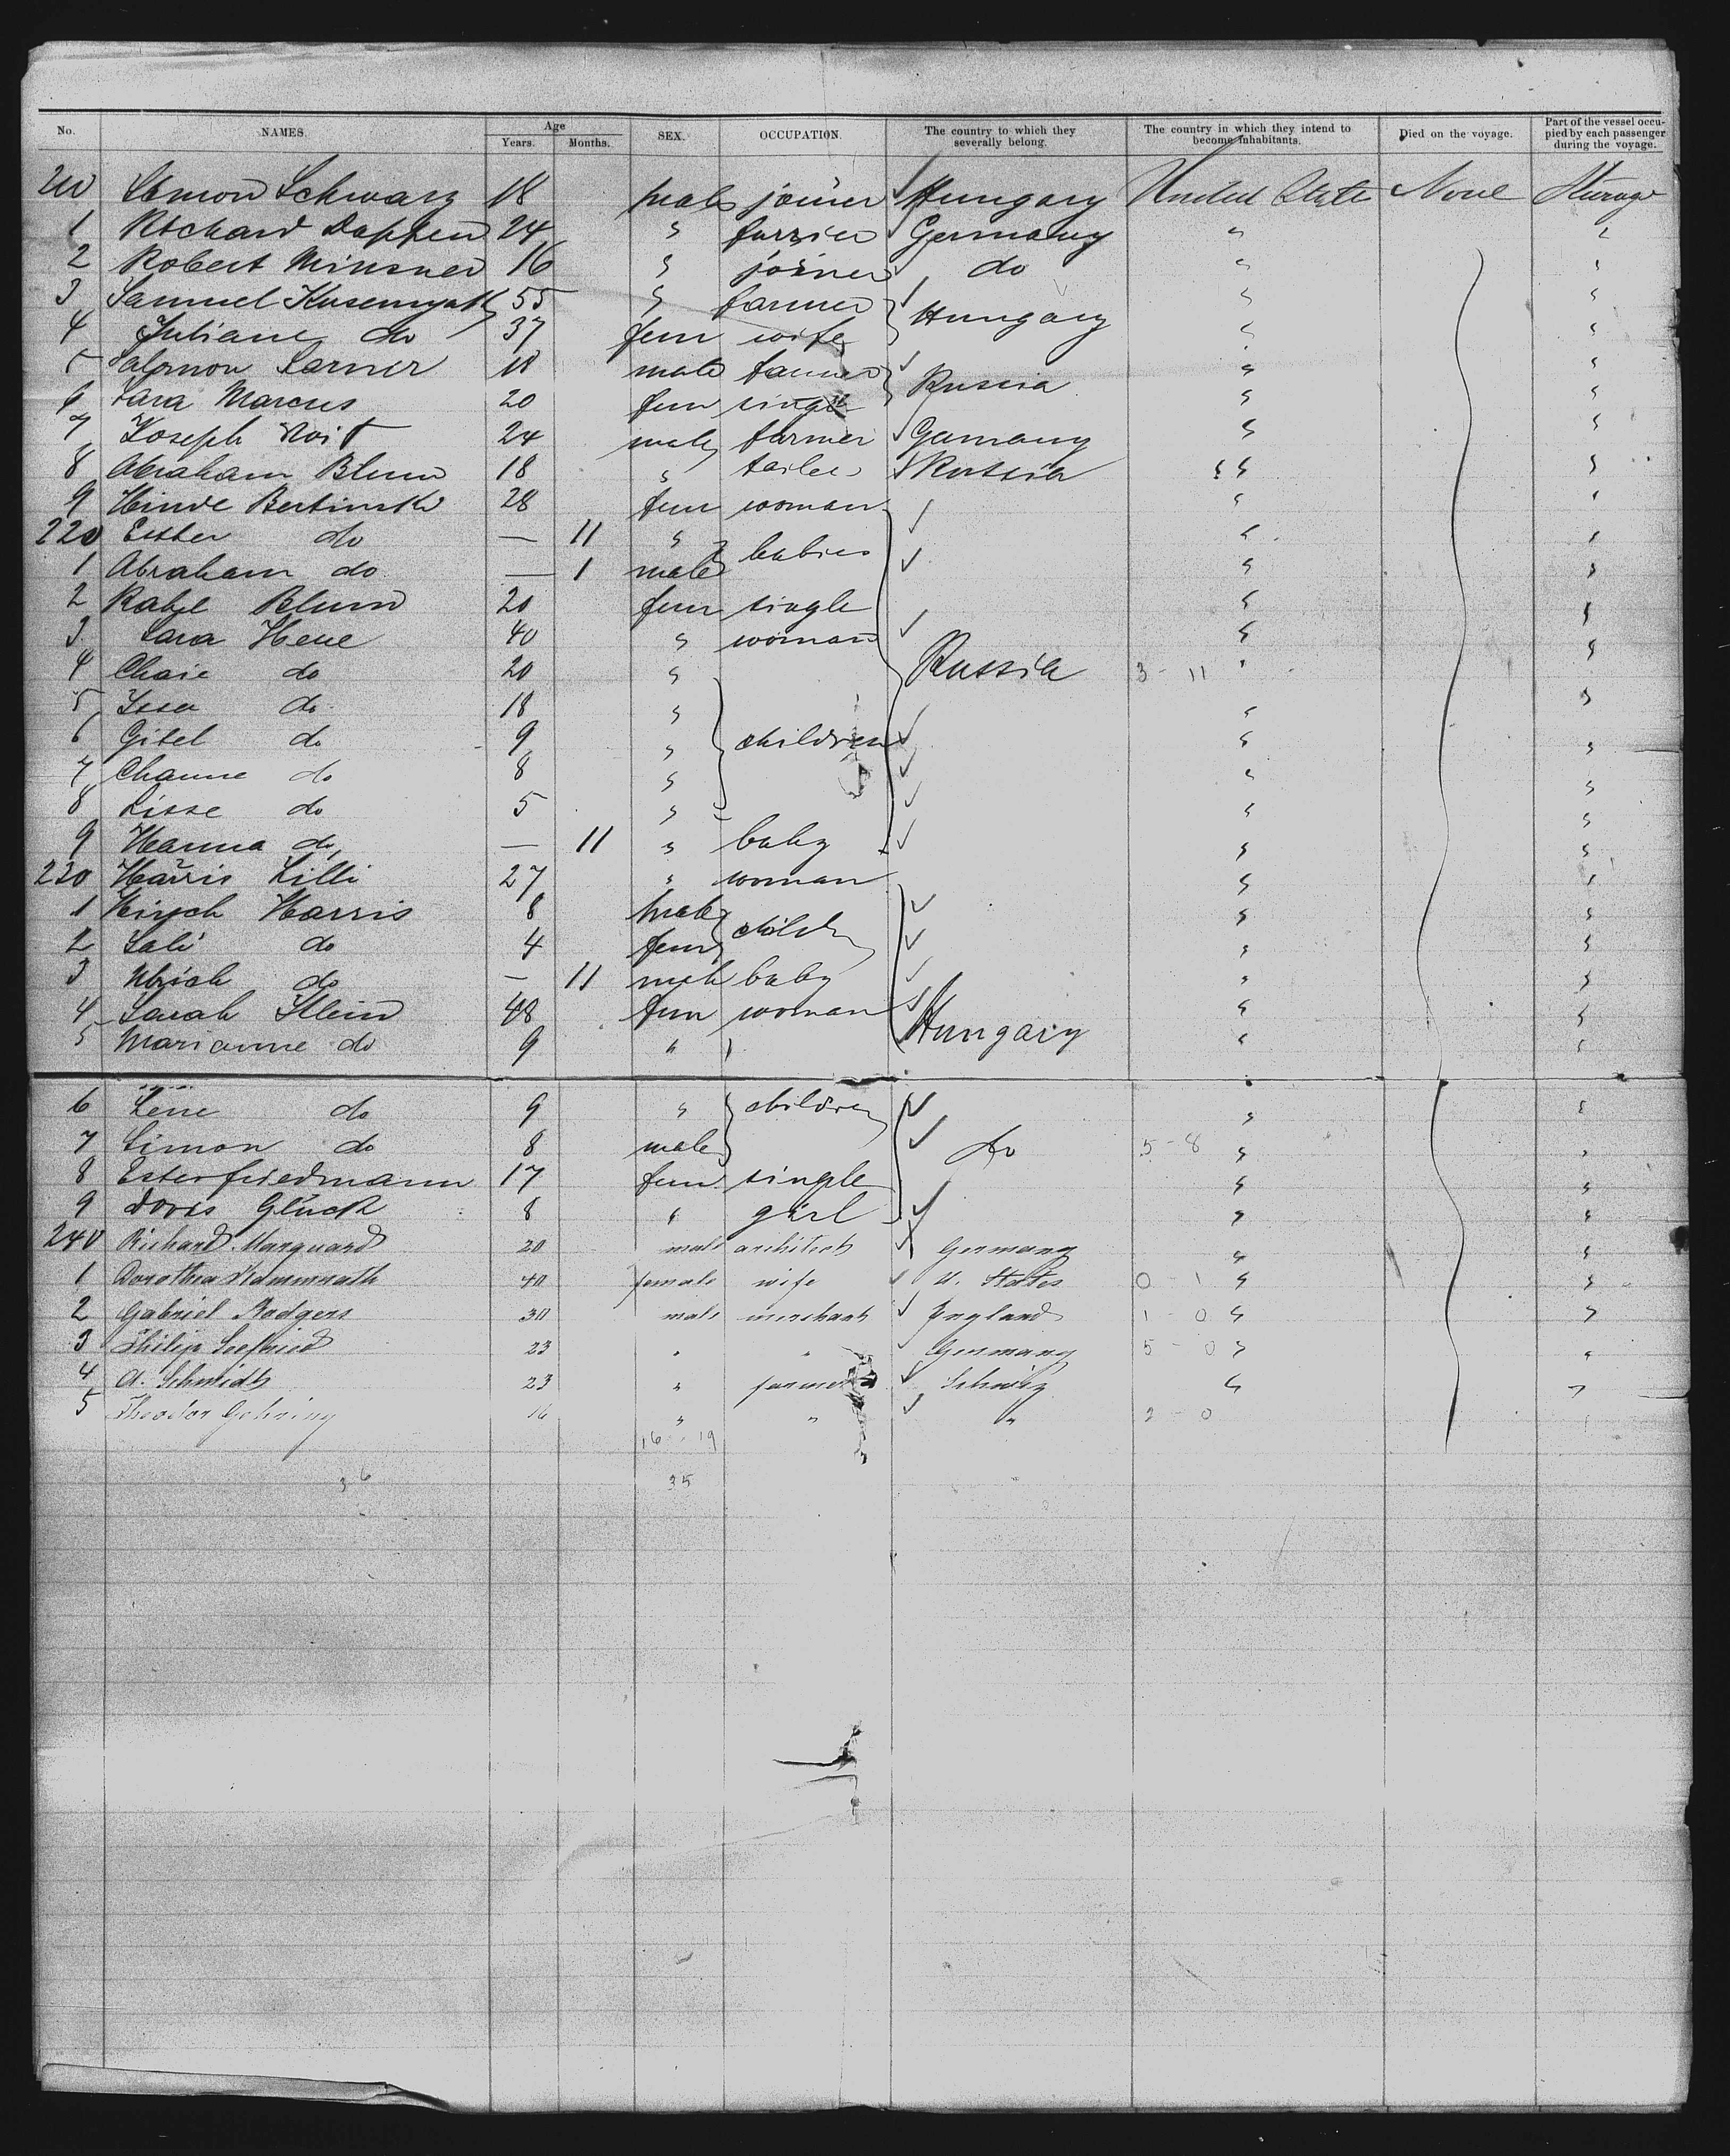 No. NAMES. Age Years. Months. SEX. OCCUPATION. The country to which they severally belong. The country in which they intend to become inhabitants. Died on the voyage. Part of the vessel occupied by each passenger during the voyage.
210 Simon Schwarz 18 male joiner Hungary United State None Steerage
1 Richard Dappen 24 " farrier Germany " "
2 Robert Minsner 16 " joiner do " "
3 Samuel 55 " farmer Hungary " "
4 Juliane do 37 fem wife " "
5 Salomon Larner 18 male farmer Russia " "
6 Sara Marcus 20 fem single " "
7 Joseph Voit 24 male farmer Germany " "
8 Abraham Blum 18 " Russia " "
9 Hinde Bertinski 28 fem woman " "
220 Ester do — 11 " babies " "
1 Abraham do — 1 male " "
2 Rahel Blum 20 fem single " "
3 Sara Hene 40 " woman " "
4 Chaie do 20 " Russia 3 - 11 "
5 Issa do 18 " " "
6 Gitel do 9 " children " "
7 Channe do 8 " " "
8 Lisse do 5 " " "
9 Hanna do — 11 " baby " "
230 Harris Lilli 27 " woman " "
1 Hirsch Harris 8 male " "
2 Sali do 4 fem " "
3 do — 11 male baby " "
4 Sarah Klein 48 fem woman Hungary " "
5 Marianne do 9 " " "
6 Lene do 9 " children " "
7 Simon do 8 male do 5 - 8 " "
8 Ester friedmann 17 fem single " "
9 Doris Glück 8 " girl " "
240 Richard Marquard 20 male architect Germany " "
1 Dorothea Kammrath 40 female wife U. States 0 - 1 " "
2 Gabriel Rodgers 30 male merchant England 1 - 0 " "
3 Philip Seefried 23 " " Germany 5 - 0 " "
4 A. Schmidt 23 " farmer Schweiz " "
5 Theodor Gehring 16 " " " 2 - 0
16 . 19
36 35